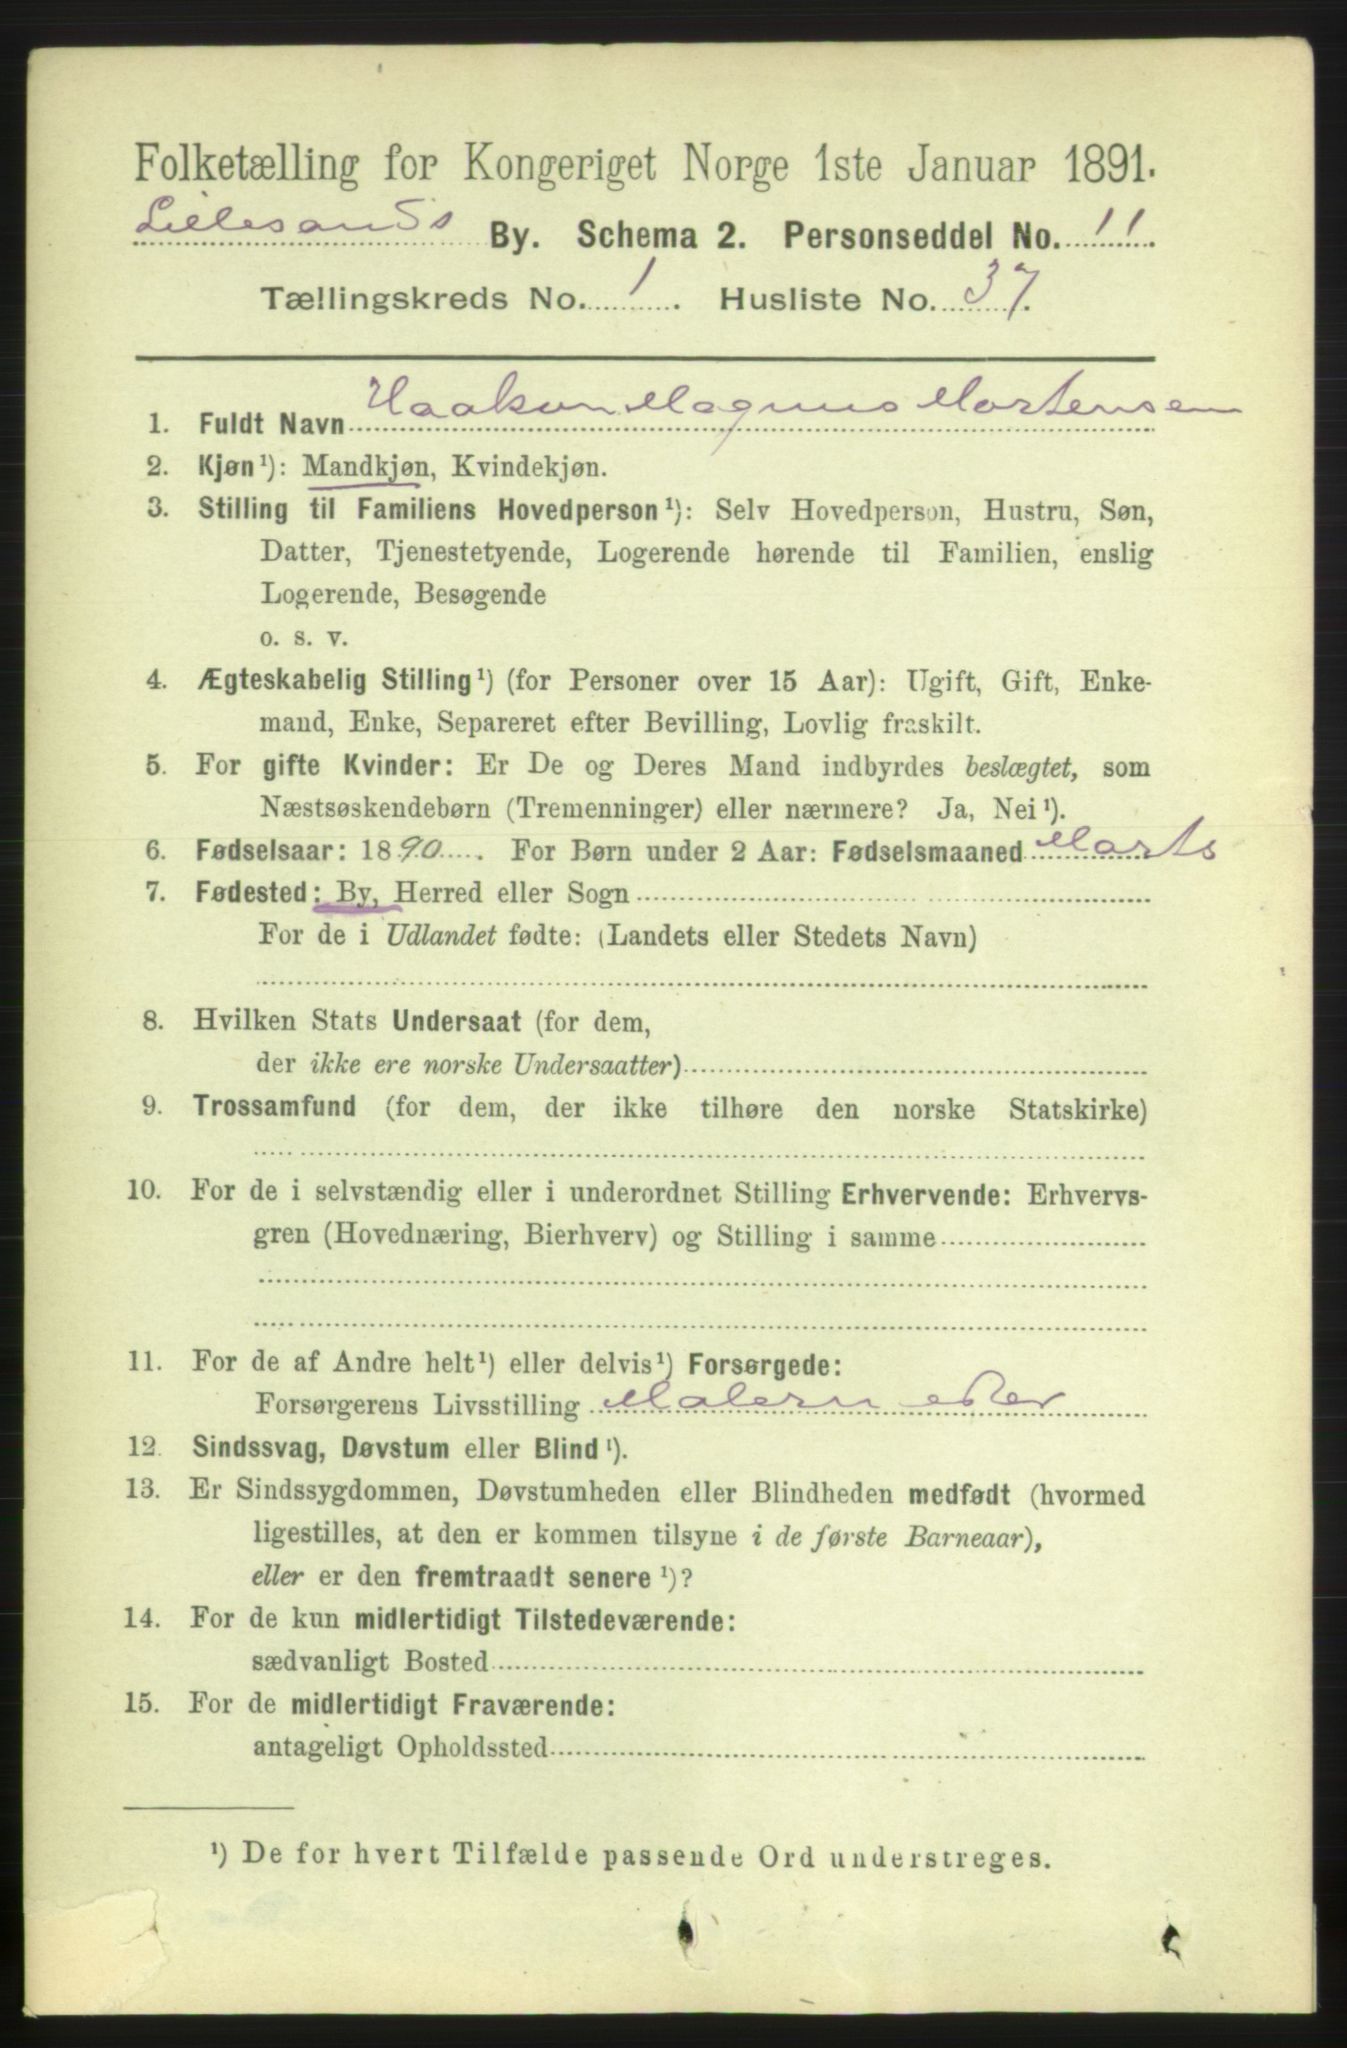 Folketælling for Kongeriget Norge 1ste Januar 1891.
Lillesands By. Schema 2. Personseddel No. 11.
Tællingskreds No. 1. Husliste No. 37.
1. Fuldt Navn Haakon Magnus Mortensen
2. Kjøn¹): Mandkjøn, Kvindekjøn.
3. Stilling til Familiens Hovedperson¹): Selv Hovedperson, Hustru, Søn,
Datter, Tjenestetyende, Logerende hørende til Familien, enslig
Logerende, Besøgende
o. s. v.
4. Ægteskabelig Stilling¹) (for Personer over 15 Aar): Ugift, Gift, Enke-
mand, Enke, Separeret efter Bevilling, Lovlig fraskilt.
5. For gifte Kvinder: Er De og Deres Mand indbyrdes beslægtet, som
Næstsøskendebørn (Tremenninger) eller nærmere? Ja, Nei¹).
6. Fødselsaar: 1890. For Børn under 2 Aar: Fødselsmaaned Marts
7. Fødested: By, Herred eller Sogn
For de i Udlandet fødte: (Landets eller Stedets Navn)
8. Hvilken Stats Undersaat (for dem,
der ikke ere norske Undersaatter)
9. Trossamfund (for dem, der ikke tilhøre den norske Statskirke)
10. For de i selvstændig eller i underordnet Stilling Erhvervende: Erhvervs-
gren (Hovednæring, Bierhverv) og Stilling i samme
11. For de af Andre helt¹) eller delvis¹) Forsørgede:
Forsørgerens Livsstilling Malermester
12. Sindssvag, Døvstum eller Blind¹).
13. Er Sindssygdommen, Døvstumheden eller Blindheden medfødt (hvormed
ligestilles, at den er kommen tilsyne i de første Barneaar),
eller er den fremtraadt senere¹)?
14. For de kun midlertidigt Tilstedeværende:
sædvanligt Bosted
15. For de midlertidigt Fraværende:
antageligt Opholdssted
¹) De for hvert Tilfælde passende Ord understreges.